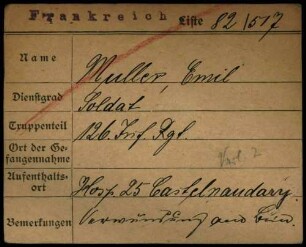 Frankreich Liste 82/517
Name Muller, Emil
Dienstgrad Soldat
Truppenteil 126. Inf. Rgt.
Ort der Gefangennahme
Aufenthaltsort Hosp. 25 Castelnaudary.
Bemerkungen Verwundung am